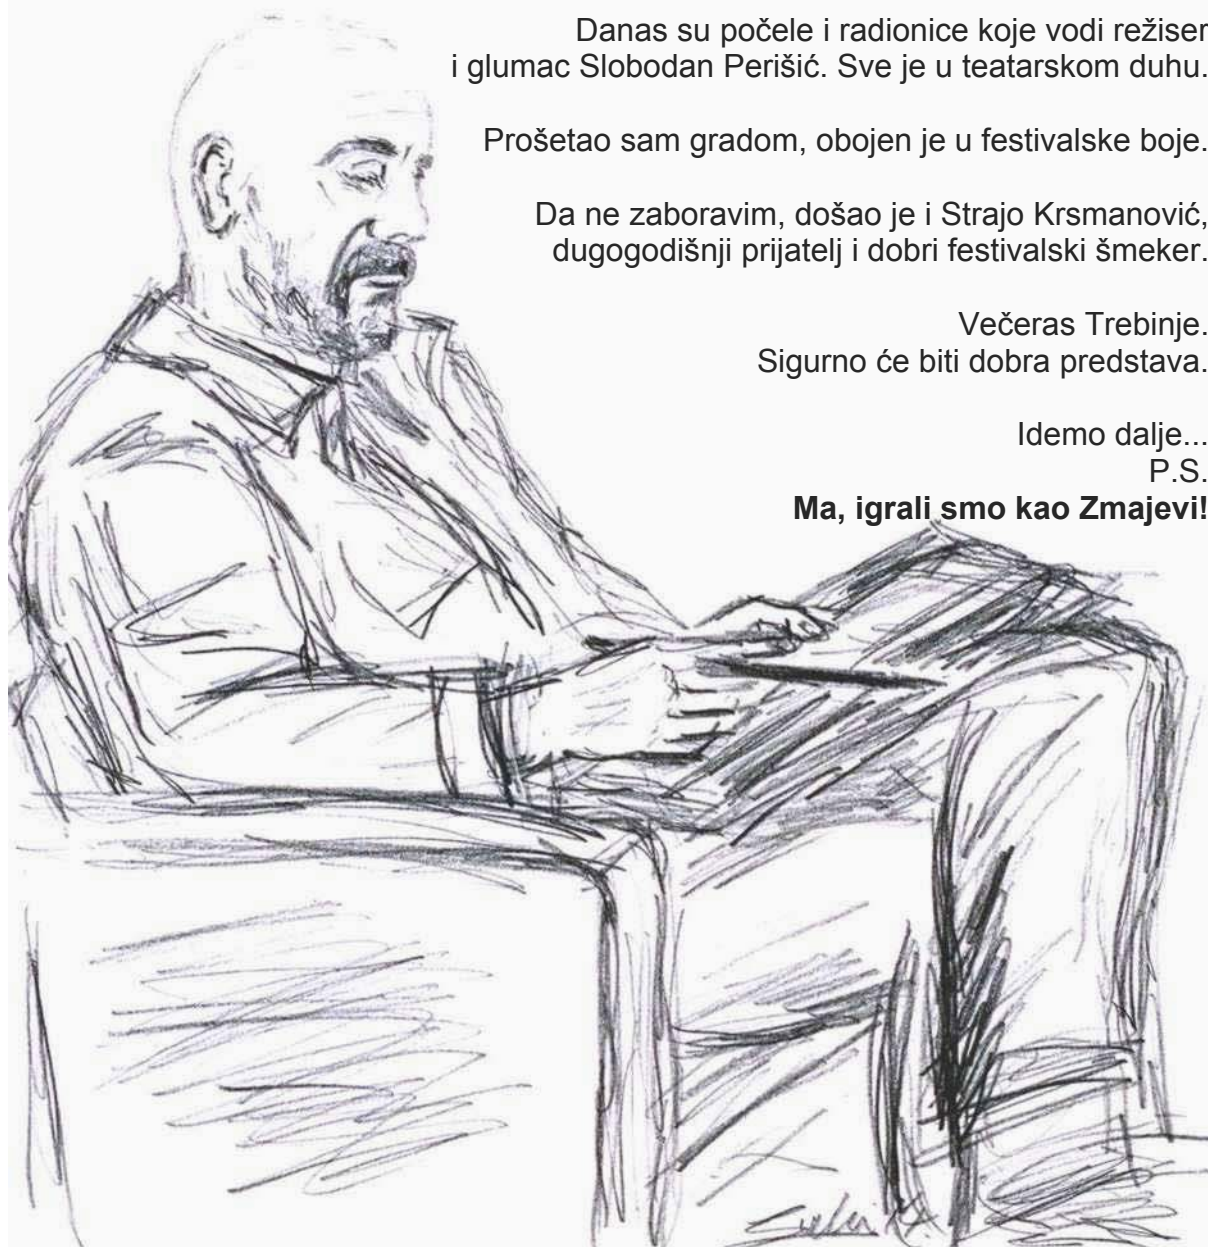 Danas su počele i radionice koje vodi režiser
i glumac Slobodan Perišić. Sve je u teatarskom duhu.
Prošetao sam gradom, obojen je u festivalske boje.
Da ne zaboravim, došao je i Strajo Krsmanović,
dugogodišnji prijatelj i dobri festivalski šmeker.
Večeras Trebinje.
Sigurno će biti dobra predstava.
Idemo dalje...
P.S.
Ma, igrali smo kao Zmajevi!